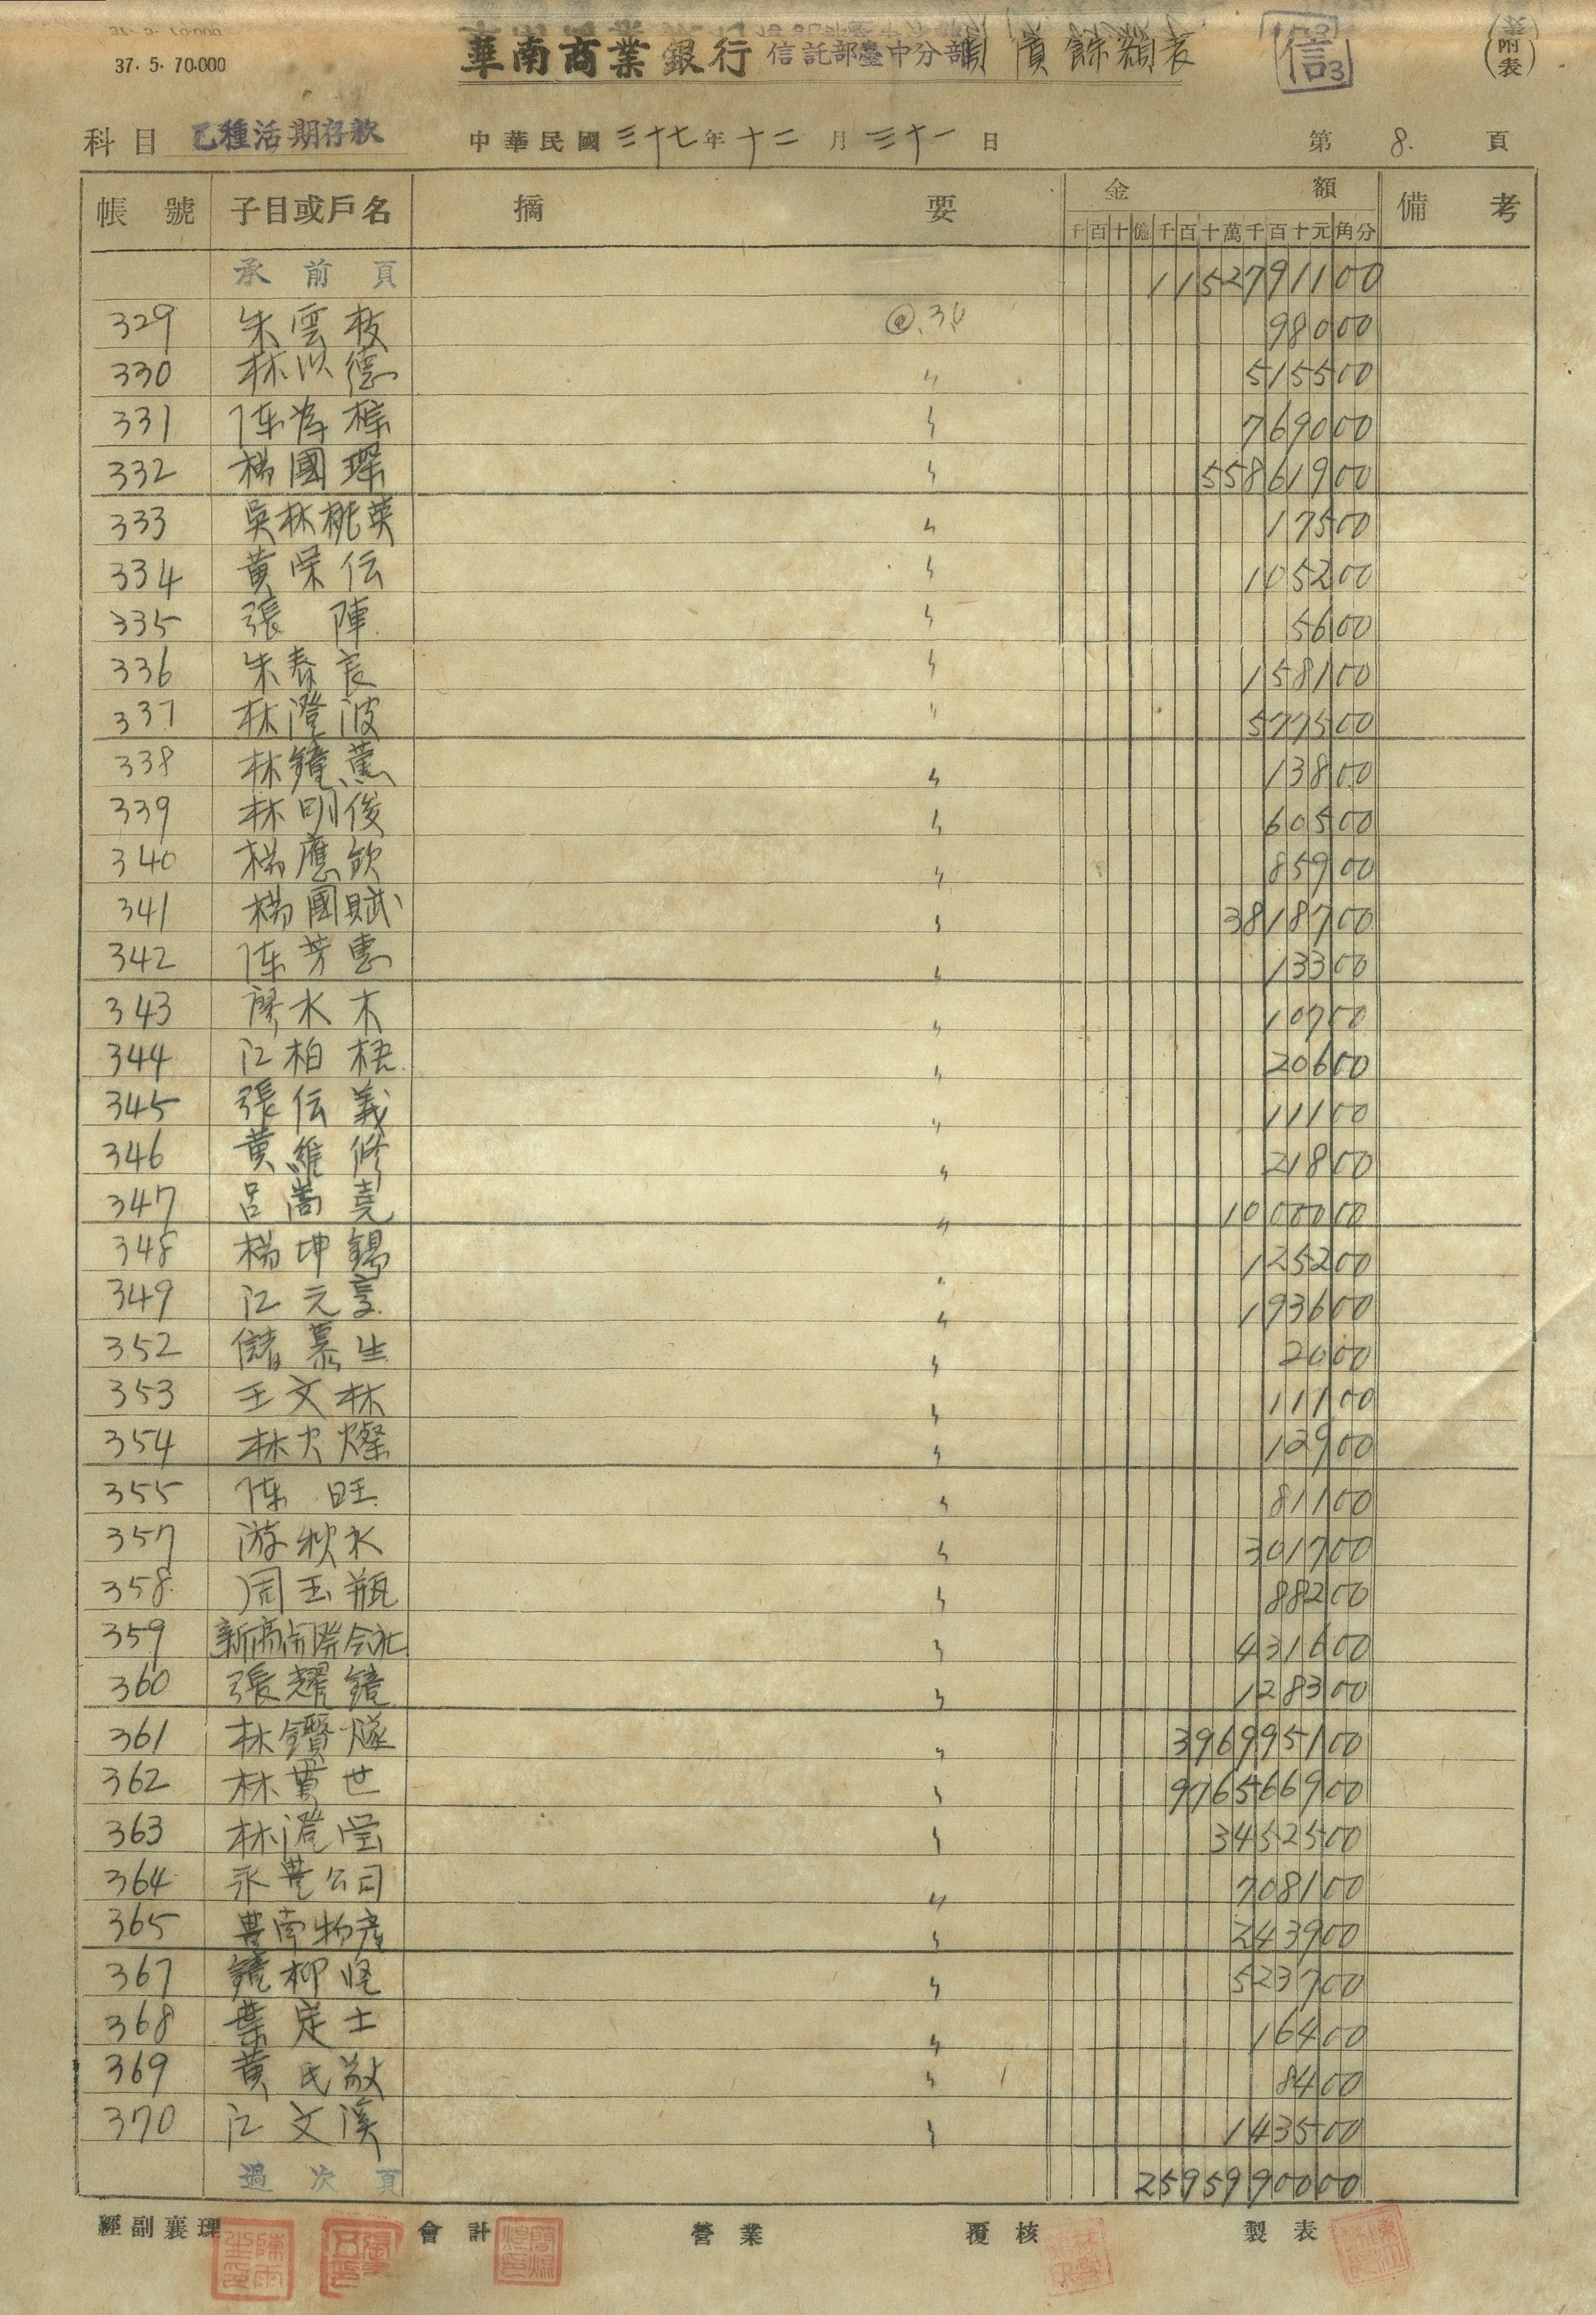 37. 5. 70.000
華南商業銀行 信託部臺中分部 餘額表
信 3
(附表)
科目 乙種活期存款 中華民國三十七年十二月三十一日 第 8. 頁
帳號 子目或戶名 摘要 金額 備考
千百十億千百十萬千百十元角分
承前頁 1152791100
329 朱雲枝 @.30 98000
330 林以德 〃 515500
331 陈 〃 769000
332 楊國琛 〃 5586190 0
333 吳林桃葉 〃 17500
334 黃荣伝 〃 105200
335 張陣 〃 5600
336 朱泰良 〃 158100
337 林澄波 〃 577500
338 林鏡薰 〃 13800
339 林明俊 〃 60500
340 楊應欽 〃 85900
341 楊國賦 〃 3818700
342 陈芳惠 〃 13300
343 廖水木 〃 10700
344 江柏梧 〃 20600
345 張伝義 〃 11100
346 黃維修 〃 21800
347 呂嵩堯 〃 1000000
348 楊坤錫 〃 125200
349 江元 〃 193600
352 儲慕生 〃 2000
353 王文林 〃 11100
354 林火燦 〃 12900
355 陈旺 〃 81100
357 游秋水 〃 301700
358 周玉瓶 〃 88200
359 新高 会社 〃 431600
360 張耀鏡 〃 128300
361 林鑽燧 〃 396995100
362 林貫世 〃 976566900
363 林澄瑩 〃 3452500
364 永豊公司 〃 708100
365 豊南物産 〃 243900
367 柳 〃 523700
368 葉定士 〃 16400
369 黃氏敬 〃 8400
370 江文溪 〃 143500
過次頁 2595990000
經副襄理 會計 營業 覆核 製表